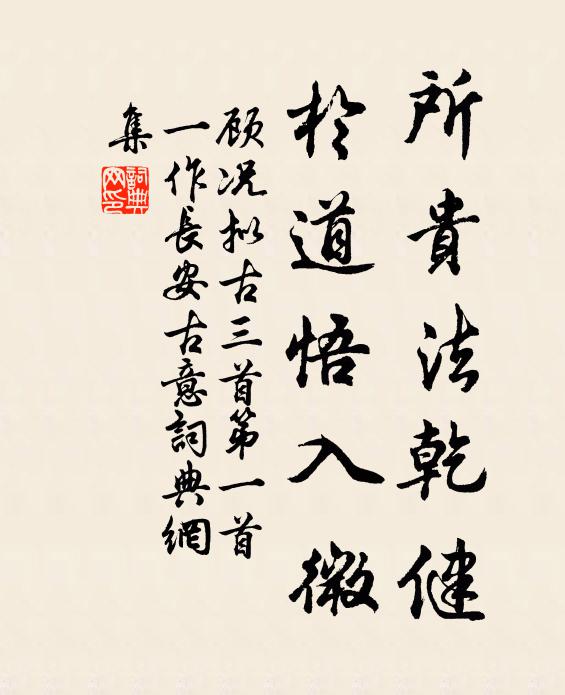 所貴法乾健
於道悟入微
顾况拟古三首第一首
一作長安古意詞典網
集
詞典
网印